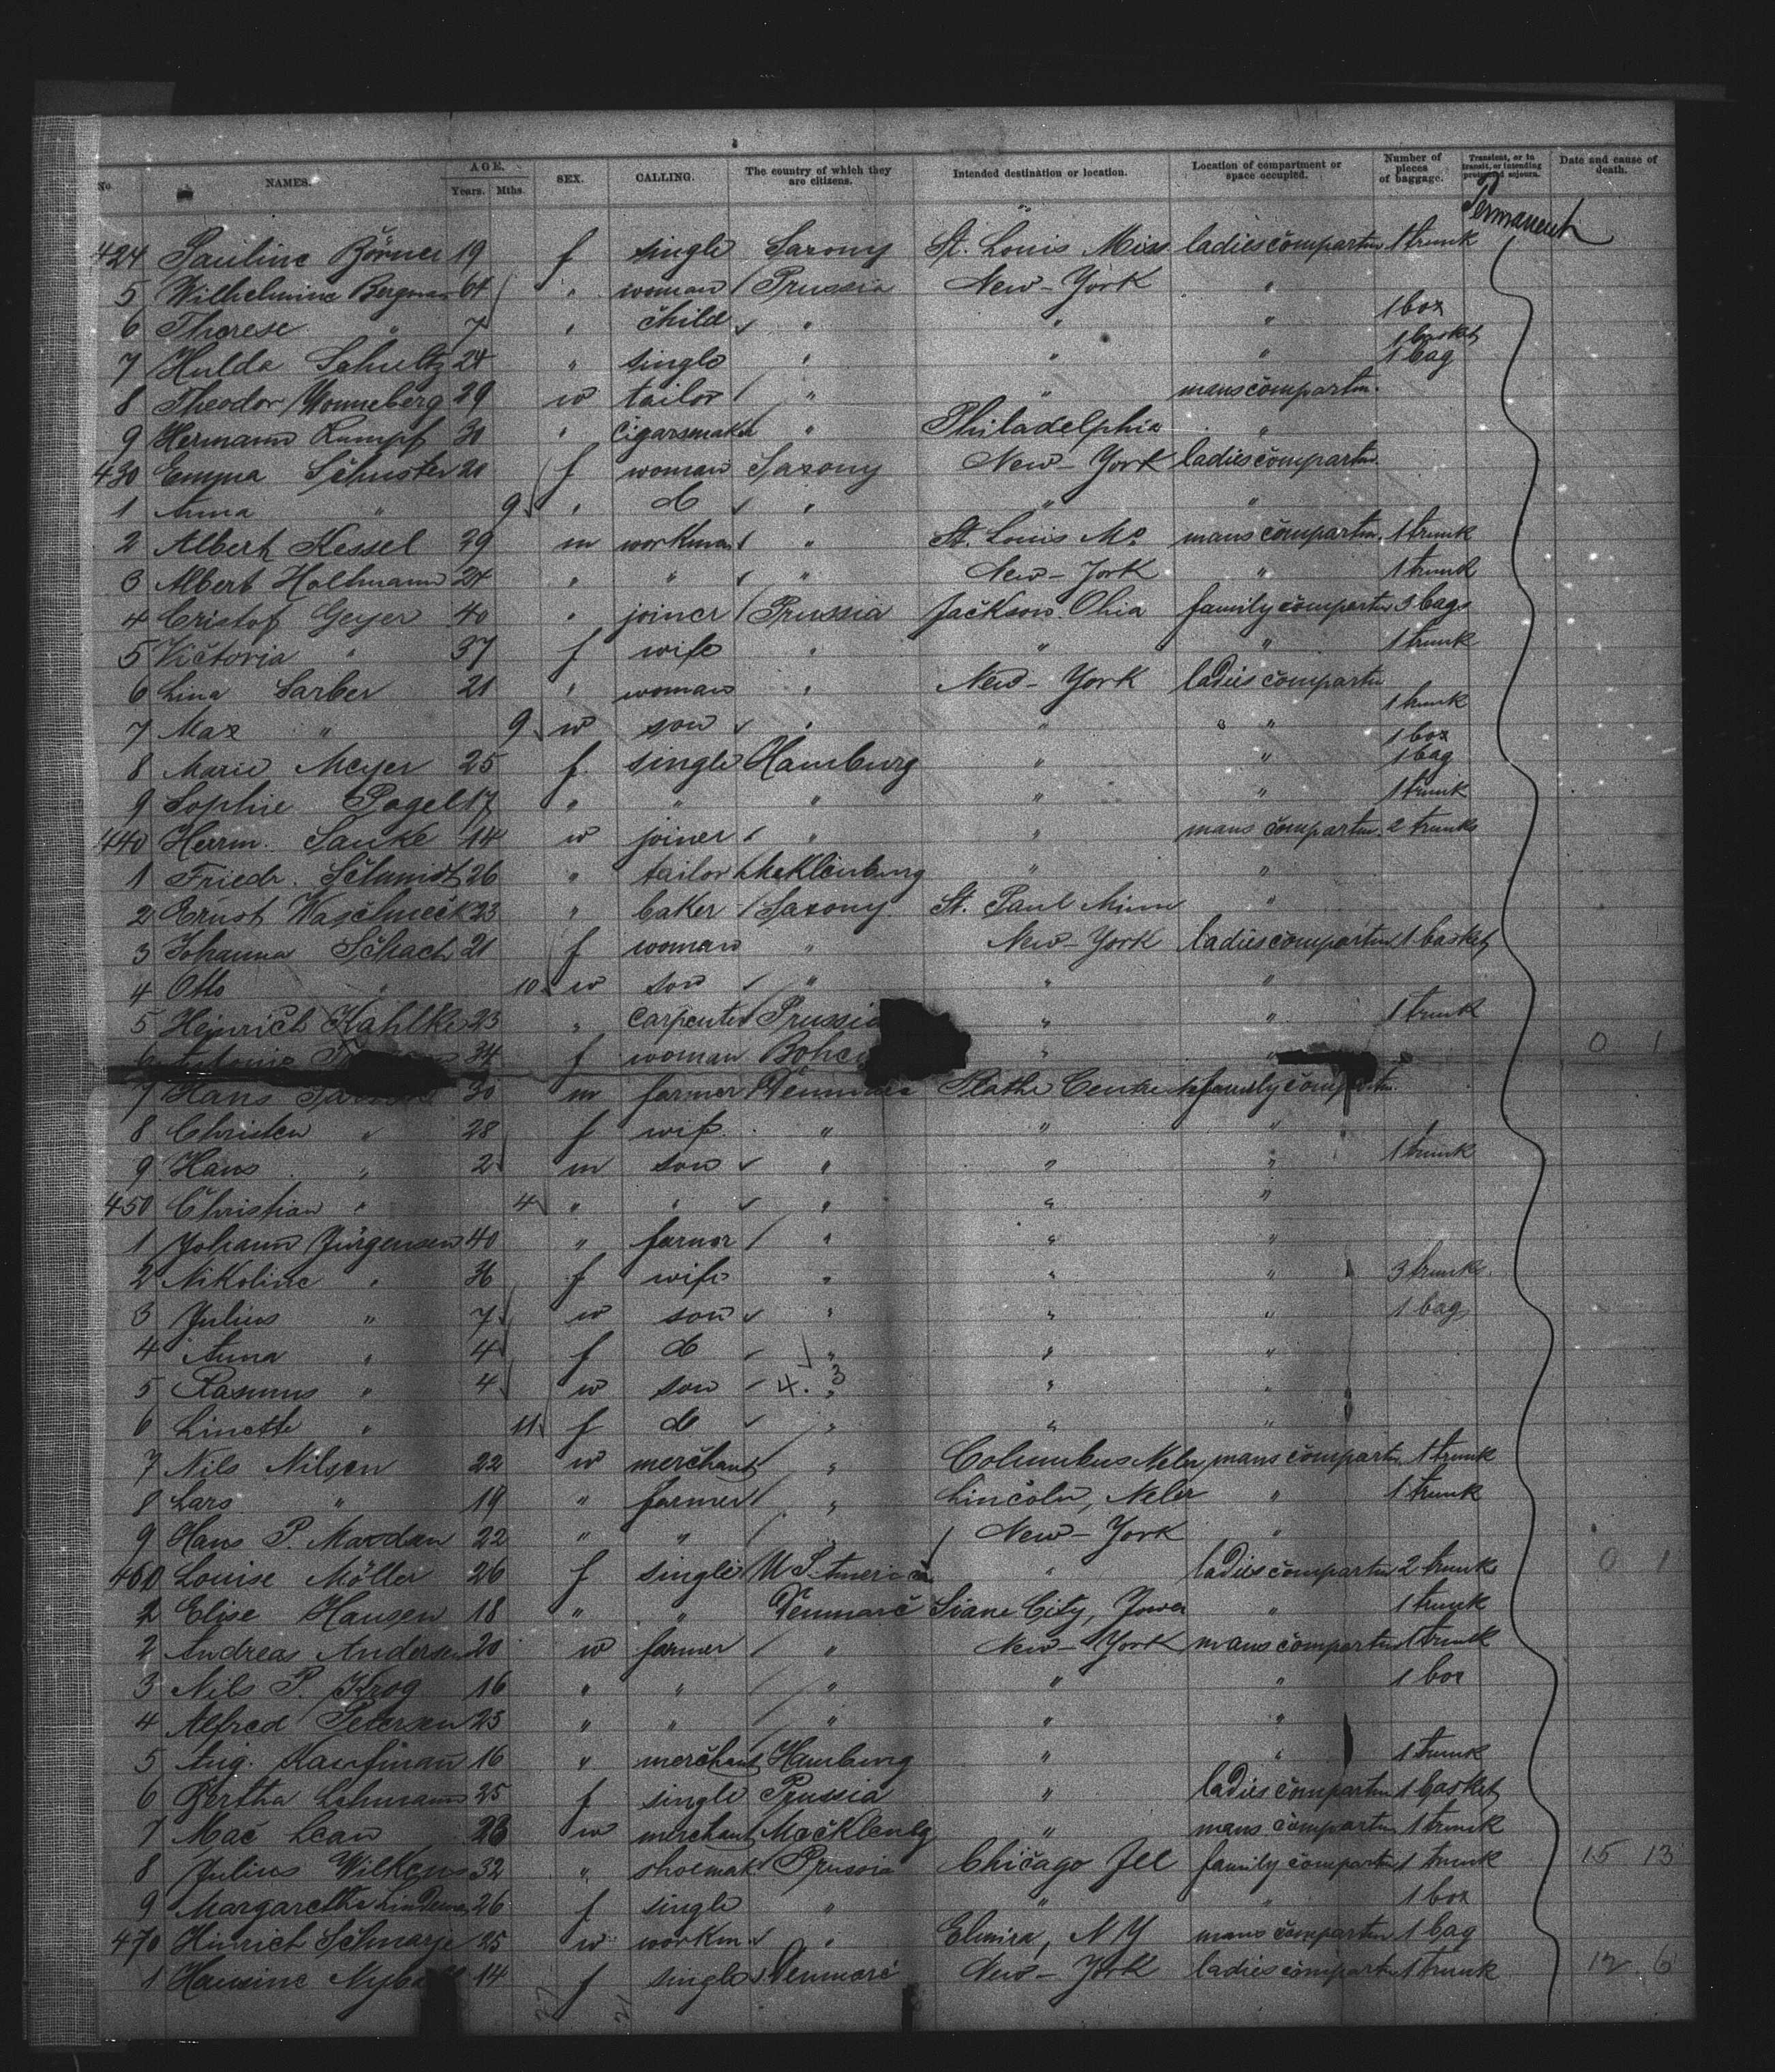 No. NAMES. AGE. Years. Mths. SEX. CALLING. The country of which they are citizens. Intended destination or location. Location of compartment or space occupied. Number of pieces of baggage. Transient, or in transit, or intending protracted sojourn. Date and cause of death.
Permanent
424 Pauline Börner 19 f single Saxony St. Louis Miss ladies compartm 1 trunk
5 Wilhelmine Bergman 64 " woman / Prussia New-York "
6 Therese " 7 " child " " " 1 box
7 Hulda Schultz 24 " single " " " 1 basket 1 bag
8 Theodor Wonneberg 29 w tailor / " " mans compartm.
9 Hermann Rumpf 30 " cigarsmaker " Philadelphia "
430 Emma Schuster 20 f woman Saxony New-York ladies compartm.
1 Anna " 9 " d " " "
2 Albert Kessel 29 m workman " St. Louis Mo mans compartm. 1 trunk
3 Albert Holtmann 24 " " " New-York " 1 trunk
4 Cristof Geyer 40 " joiner / Prussia Jackson Ohia family compartm 3 bags
5 Victoria " 37 f wife " " " 1 trunk
6 Lina Sarber 21 " woman " New-York ladies compartm
7 Max " 9 w son " " " " 1 trunk
8 Marie Meyer 25 f. single Hamburg " " 1 box 1 bag
9 Sophie Pagel 17 " " " " " 1 trunk
440 Herrm. Sauke 14 w joiner " " mans compartm. 2 trunks
1 Friedr. Schmidt 26 " tailor Meklenburg " "
2 Ernst Waschneck 23 " baker / Saxony. St. Paul Minn "
3 Johanna Schach 21 f woman " New-York ladies compartm 1 basket
4 Otto " 10 w son " " "
5 Heinrich Kahlke 23 " carpenter Prussia " " 1 trunk
34 f woman " " 0 1
7 Hans 30 m farmer Platte Centre family compartm.
8 Christen " 28 f wif. " " "
9 Hans " 2 m son " " " 1 trunk
450 Christian " 4 " " " " "
1 Johann Jürgensen 40 " farmer / " " "
2 Nikoline " 36 f wife " " " 3 trunks.
3 Julius " 7 w son " " " 1 bag
4 Anna " 4 f d " " "
5 Rasmus " 4 w son 4. 3 " " "
6 Linette " 11 f d " " "
7 Nils Nilsen 22 w merchant / " Columbus Nebr mans compartm 1 trunk
8 Lars " 19 " farmer / " Lincoln, Nebr " 1 trunk
9 Hans P. 22 " " / " New-York "
460 Louise Möller 26 f single U.S. America " ladies compartm 2 trunks 0 1
2 Elise Hansen 18 " " Denmarc City, Jowa " 1 trunk
2 Andreas Andersen 20 w farmer / " New-York mans compartm 1 trunk
3 Nils P. Krog 16 " " / " " " 1 box
4 Alfred Petersen 25 " " / " " "
5 Aug. Kaufmann 16 " merchant Hamburg " " 1 trunk
6 Bertha Lehmann 25 f single Prussia " ladies compartm 1 basket
7 Mac Lean 23 w merchant Mecklenbg " mans compartm 1 trunk
8 Julius Wilkens 32 " shoemak Prussia Chicago Ill family compartm 1 trunk 15 13
9 Margaretha 26 f single " " " 1 box
470 Hinrich Schnarje 25 w workm " Elmira, N Y mans compartm 1 bag
1 Hansine 14 f single Denmarc New-York ladies compartm 1 trunk 12 6